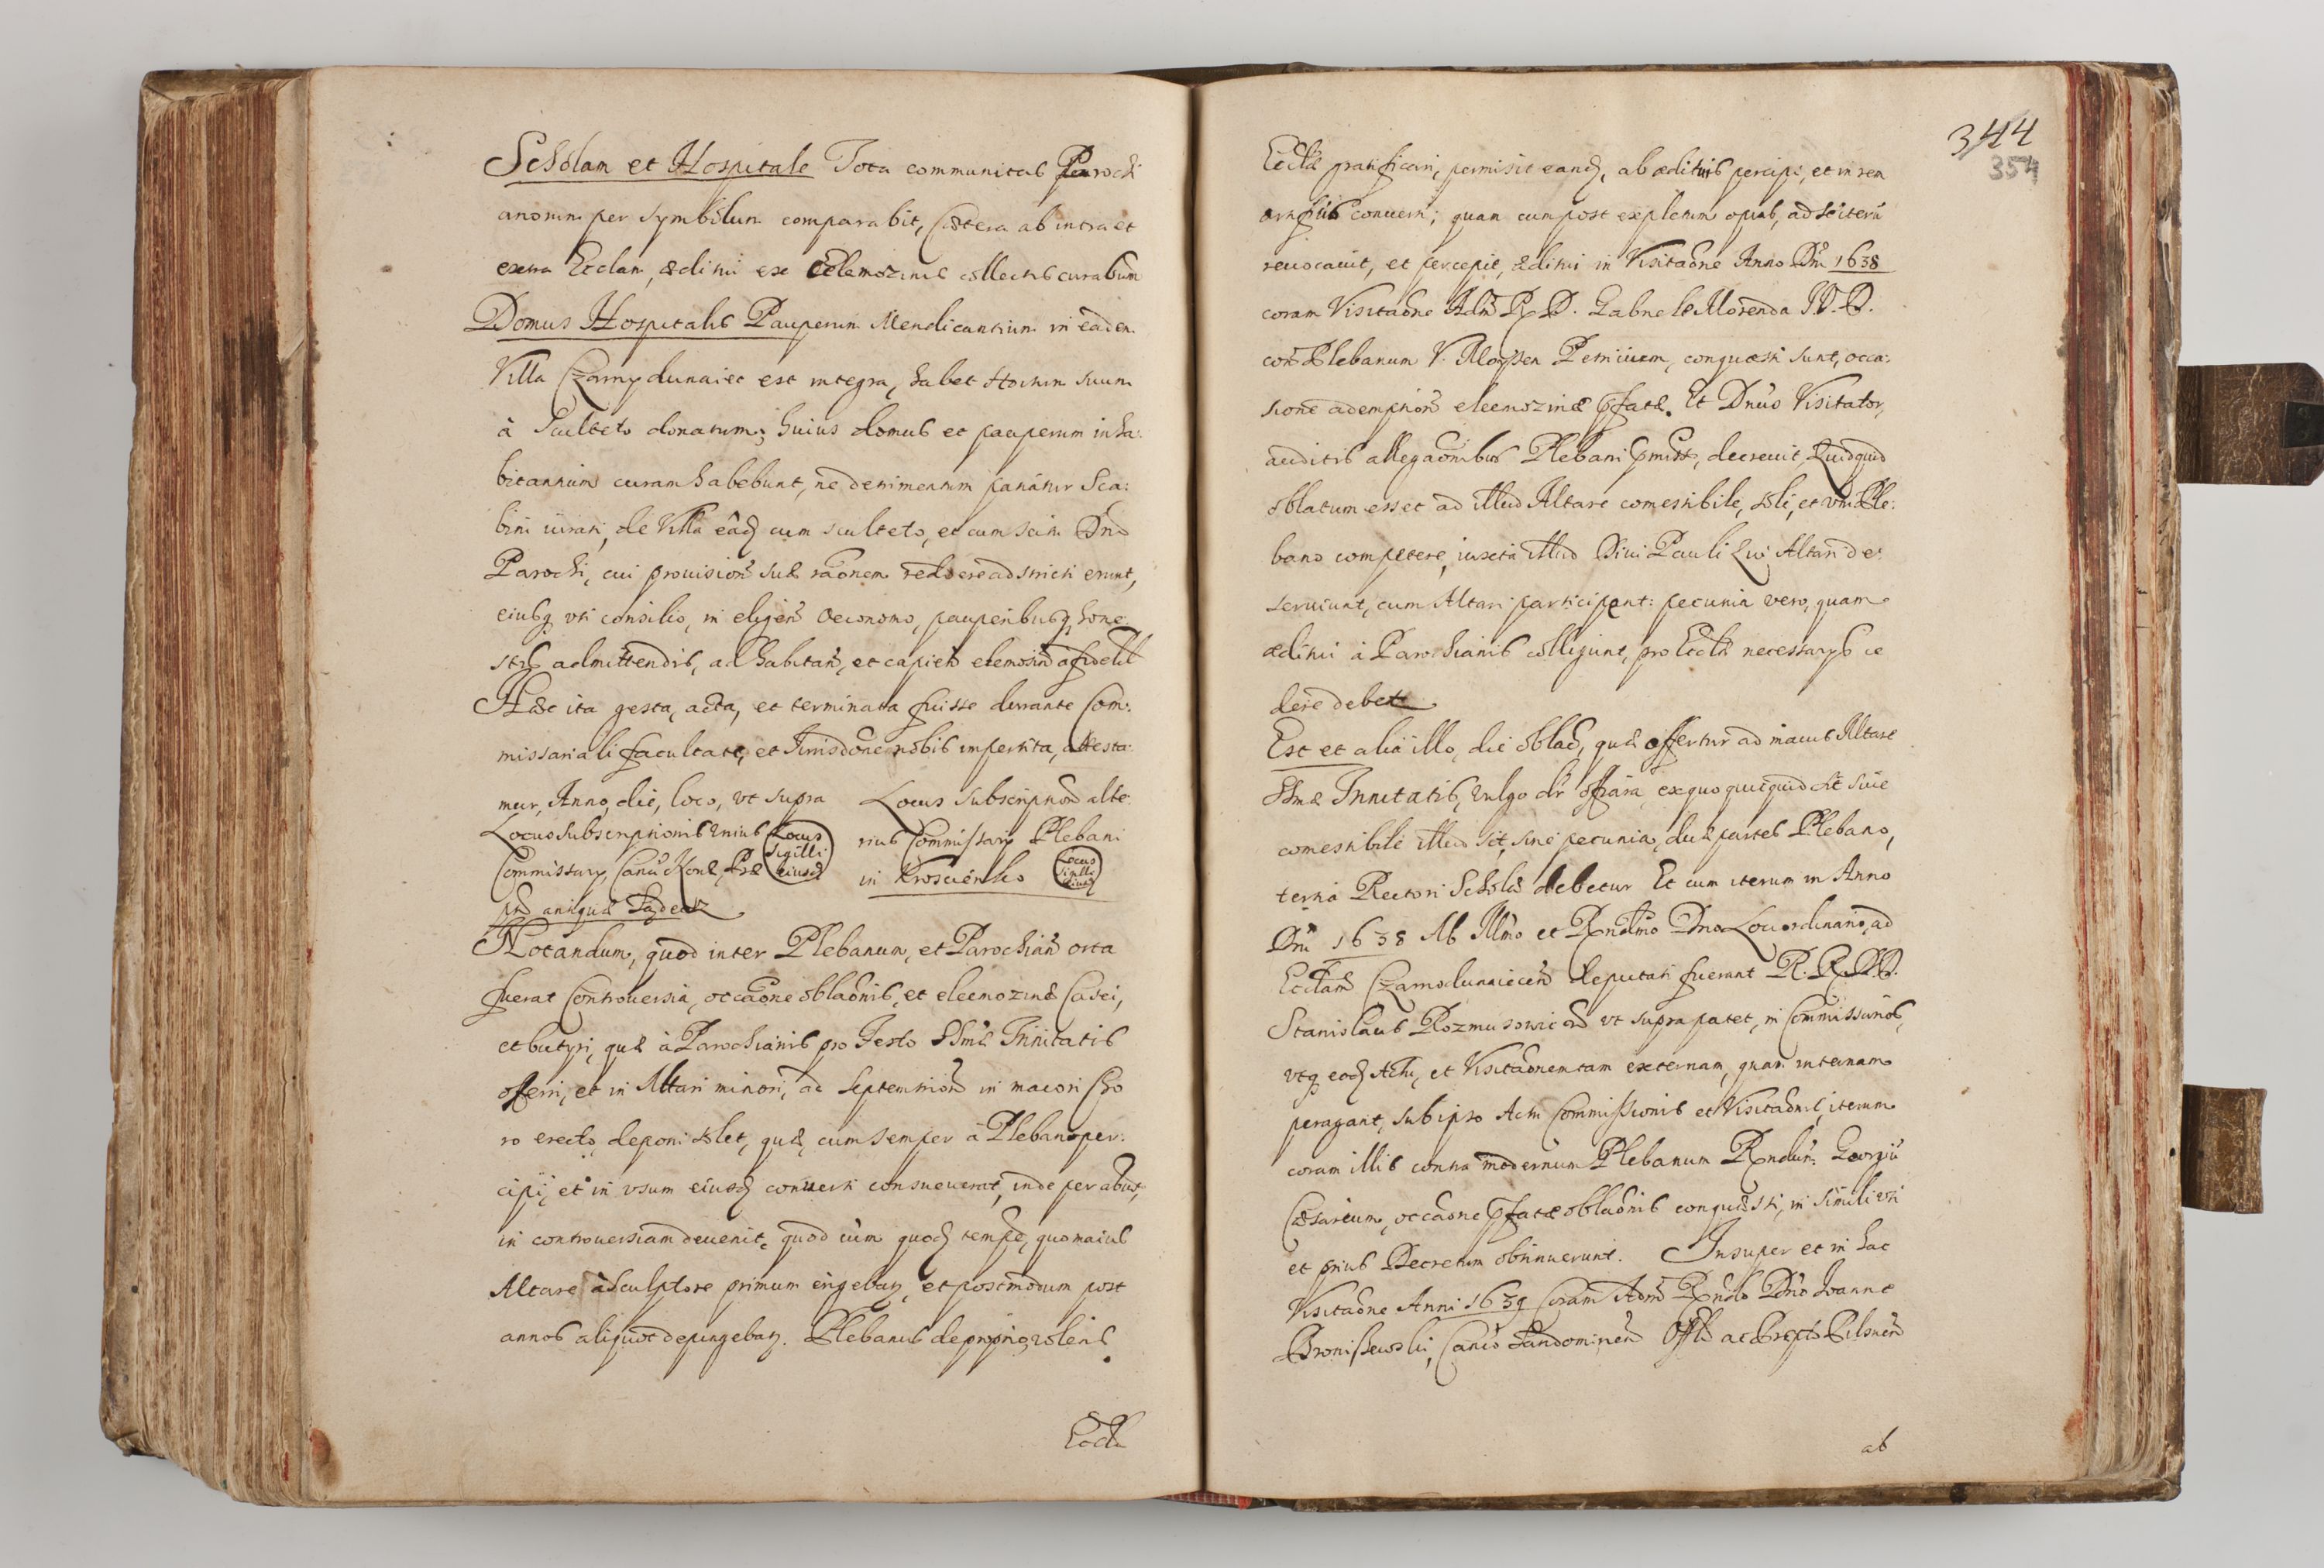 Scholam et Hospitale Tota communitas Parochi
anorum per symbolum comparabit, Cætera ab intra et
extra Eccłam, æditui ex eelemozinis collectis curabunt
Domus Hospitalis Pauperum Mendicantium in eadem
Villa Czarny dunaiec est integra, habet Hortum suum
à Sculteto donatum; huius domus et pauperum inha:
bitantium curam habebunt, ne detrimentum patiatur Sca:
bini iurati, de Villa eadę cum sculteto, et cum scitu Dnō
Parochi, cui prouisionē suæ raōnem reddere adstricti erunt,
eiusq̨ uti consilio, in eligeñ Oeconomo, pauperibusq̨ hone:
stis admittendis, ad habitań, et capień elemosinā à fidelib
Hæc ita gesta, acta, et terminata fuisse durante Com:
missariali facultate, et Jurisdōne nobis impertita, attesta:
mur, Anno, die, loco, vt supra
Locus Subscriptionis vnius
Commissarÿ
antiquæ
Locus
sigilli
eiusdę
Locus Subscriptionō alte:
rius Commissarÿ Plebani
in Krościensko
Locus
Sigilli
eiusdę
Notandum, quod inter Plebanum, et Parochiań orta
fuerat Controuersia, occaōne oblaōnis, et eleemozinæ Casei,
et butyri, quæ à Parochianis pro Festo SSmæ Trinitatis
offerri, et in Altari minori, ad Septemtrionē in maiori Cho
ro erecto, deponi solet, quæ, cum semper à Plebano per:
cipi, et in vsum eiusdę conuerti consueuerat, inde per abus,
in controuersiam deuenit, quod cùm quodę tempe, quo maius
Altare à Sculptore primum erigebatą, et postmodum post
annos aliquot depingebatą. Plebanus de proprio, volens
Eccłæ
344
354
Eccłæ gratificari, permisit eandę, ab ædituis percipi, et in rem
conuerti; quam cum post expletum opus, ad se iterū
reuocauit, et percepit, æditui in Visitaōne Anno Dñi 1638
coram Visitaōne Adm R. D. Gabriele Morenda I.V.D.
con̄ Plebanum V. conquæsti sunt, occa:
sione ademptionō eleemozinæ p̄fatæ. Et Dnūs Visitator,
auditis allegaōnibus Plebani p̄missi, decreuit, Quidquid
oblatum esset ad illud Altare comestibile, soli, et vni Ple:
bano competere, iuxta illud Diui Pauli Qui Altari de:
seruiunt, cum Altari participent: pecunia vero, quam
æditui à Parochianis colligunt, pro Eccłæ necessarÿs ce
dere debet
Est et alia illo, die oblaō, quæ offertur ad maius Altare
SSmæ Trinitatis, vulgo dr offiara, ex quo quicquid sit siue
comestibile illud sit, siue pecunia, duæ partes Plebano,
tertia Rectori Scholæ debetur Et cum iterum in Anno
Dñi 1638 Ab Illmo et Rndmo Dno Loci ordinario, ad
Eccłam Czarnodunaiecēn deputati fuerant R. R. D.D.
Stanislaus Rozmusowic vt supra patet, in Commissarios,
vtq̨ eodę Actu, et Visitaōnem tam externam, quam internam
peragant, sub ipso Actu Commissionis et Visitaōnis, iterum
coram illis contra modernum Plebanum Rndum Georgiū
Cæsareum, occaōne p̄fatæ oblaōnis conquæsti, in simili uti
et prius Decretum obtinuerunt. Insuper et in hac
Visitaōne Anni 1639 Coram Adm Rndo Dnō Joanne
Broniszewski, Canco Sandomireń Offli ac Præpto Pilsneń
ab